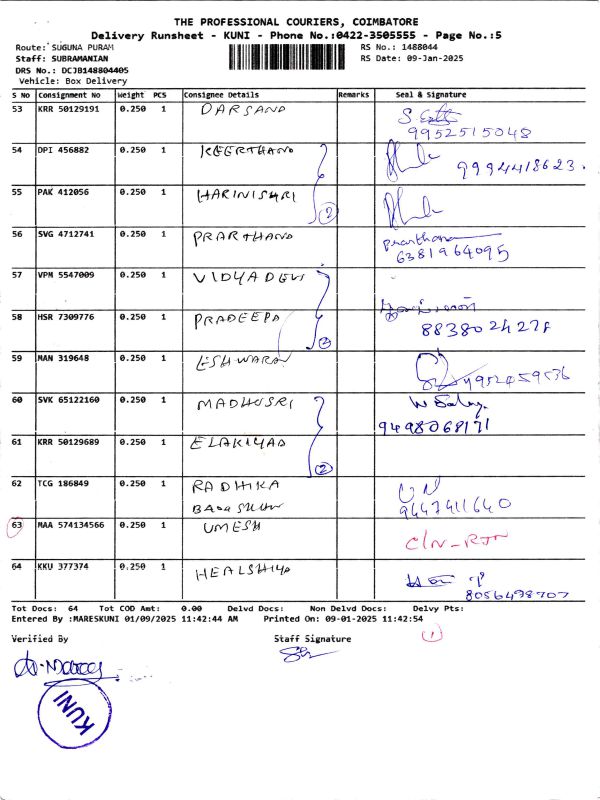 THE PROFESSIONAL COURIERS, COIMBATORE
Delivery Runsheet - KUNI - Phone No.:0422-3505555 - Page No.:5
Route: SUGUNA PURAM RS No.: 1488044
Staff: SUBRAMANIAN RS Date: 09-Jan-2025
DRS No.: DCJB148804405
Vehicle: Box Delivery
S No Consignment No Weight PCS Consignee Details Remarks Seal & Signature
53 KRR 50129191 0.250 1 DARSANA
9952515048
54 DPI 456882 0.250 1 KEERTHANA 9994418623.
55 PAK 412056 0.250 1 HARINISHRI 2
56 SVG 4712741 0.250 1 PRARTHANA prarthana
6381964095
57 VPM 5547009 0.250 1 VIDYADEVI
58 HSR 7309776 0.250 1 PRADEEPA 2 8838024278
59 MAN 319648 0.250 1 ESHWARAN 9952459536
60 SVK 65122160 0.250 1 MADHUSRI
9498068171
61 KRR 50129689 0.250 1 ELAKIYAA 2
62 TCG 186849 0.250 1 RADHIKA
9447411640
63 MAA 574134566 0.250 1 UMESH C/N-RTN
64 KKU 377374 0.250 1 HEALSHIYA
8056498707
Tot Docs: 64 Tot COD Amt: 0.00 Delvd Docs: Non Delvd Docs: Delvy Pts:
Entered By :MARESKUNI 01/09/2025 11:42:44 AM Printed On: 09-01-2025 11:42:54
1
Verified By Staff Signature
KUNI